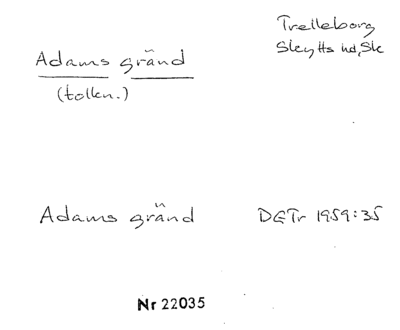 Trelleborg
Skytts hd, Sk
Adams gränd
(tolkn.)
Adams gränd
DGTr 1959:35
Nr 22035